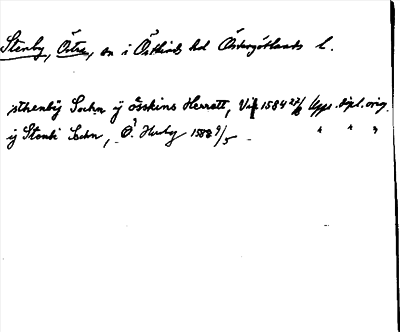 Stenby, Östra, en i Östkinds hd Östergötlands l.
sthenby Sochn ÿ össkins Herrett, 1584 Upps. dipl. orig.
ij Stenbi Sochn, Ö. Husby 1588 9/5 " " "